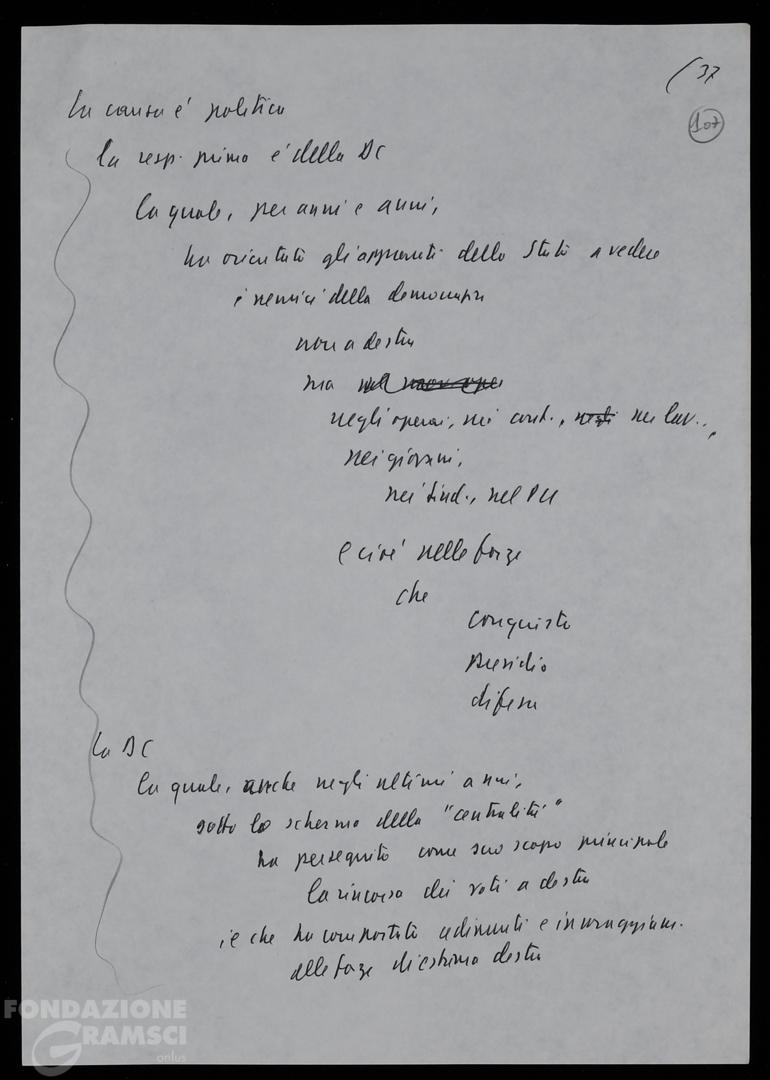 (37
107
La causa e' politica
la resp. prima e' della DC
la quale, per anni e anni,
ha orientato gli apparati dello Stato a vedere
i nemici della democrazia
non a destra
ma
negli operai, nei cont., negli nei lav.,
nei giovani,
nei sind., nel PCI
e cioe' nelle forze
che
conquista
presidio
difesa
La DC
la quale, anche negli ultimi anni,
sotto lo schermo della "centralità"
ha perseguito come suo scopo principale
la rincorsa dei voti a destra
, e che ha comportato cedimenti e incoraggiam.
alle forze di estrema destra
FONDAZIONE
GRAMSCI
onlus